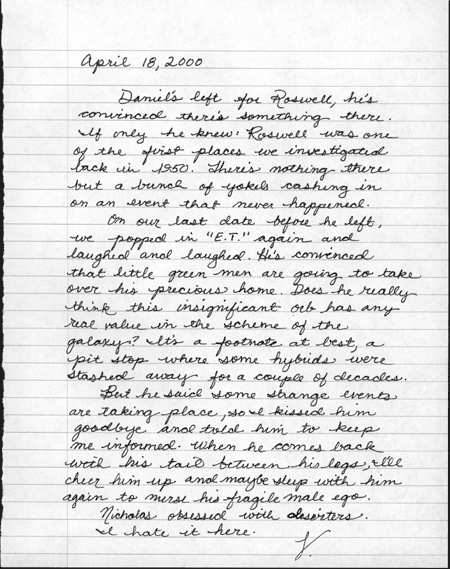 April 18, 2000
Daniel's left for Roswell, he's
convinced there's something there.
If only he knew! Roswell was one
of the first places we investigated
back in 1950. There's nothing there
but a bunch of yokels cashing in
on an event that never happened.
On our last date before he left,
we popped in "E.T." again and
laughed and laughed. He's convinced
that little green men are going to take
over his precious home. Does he really
think this insignificant orb has any
real value in the scheme of the
galaxy? It's a footnote at best, a
pit stop where some hybrids were
stashed away for a couple of decades.
But he said some strange events
are taking place, so I kissed him
goodbye and told him to keep
me informed. When he comes back
with his tail between his legs, I'll
cheer him up and maybe sleep with him
again to nurse his fragile male ego.
Nicholas obsessed with deserters.
I hate it here.